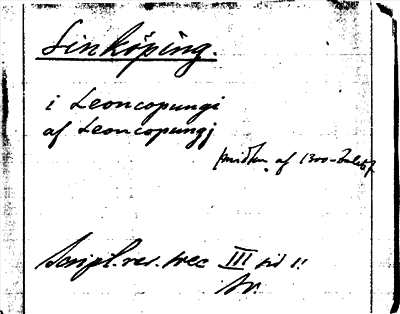 Linköping.
i Leoncopungi
af Leoncopungj
(midten af 1300-talet)
Script. rer. svec III sid 1: